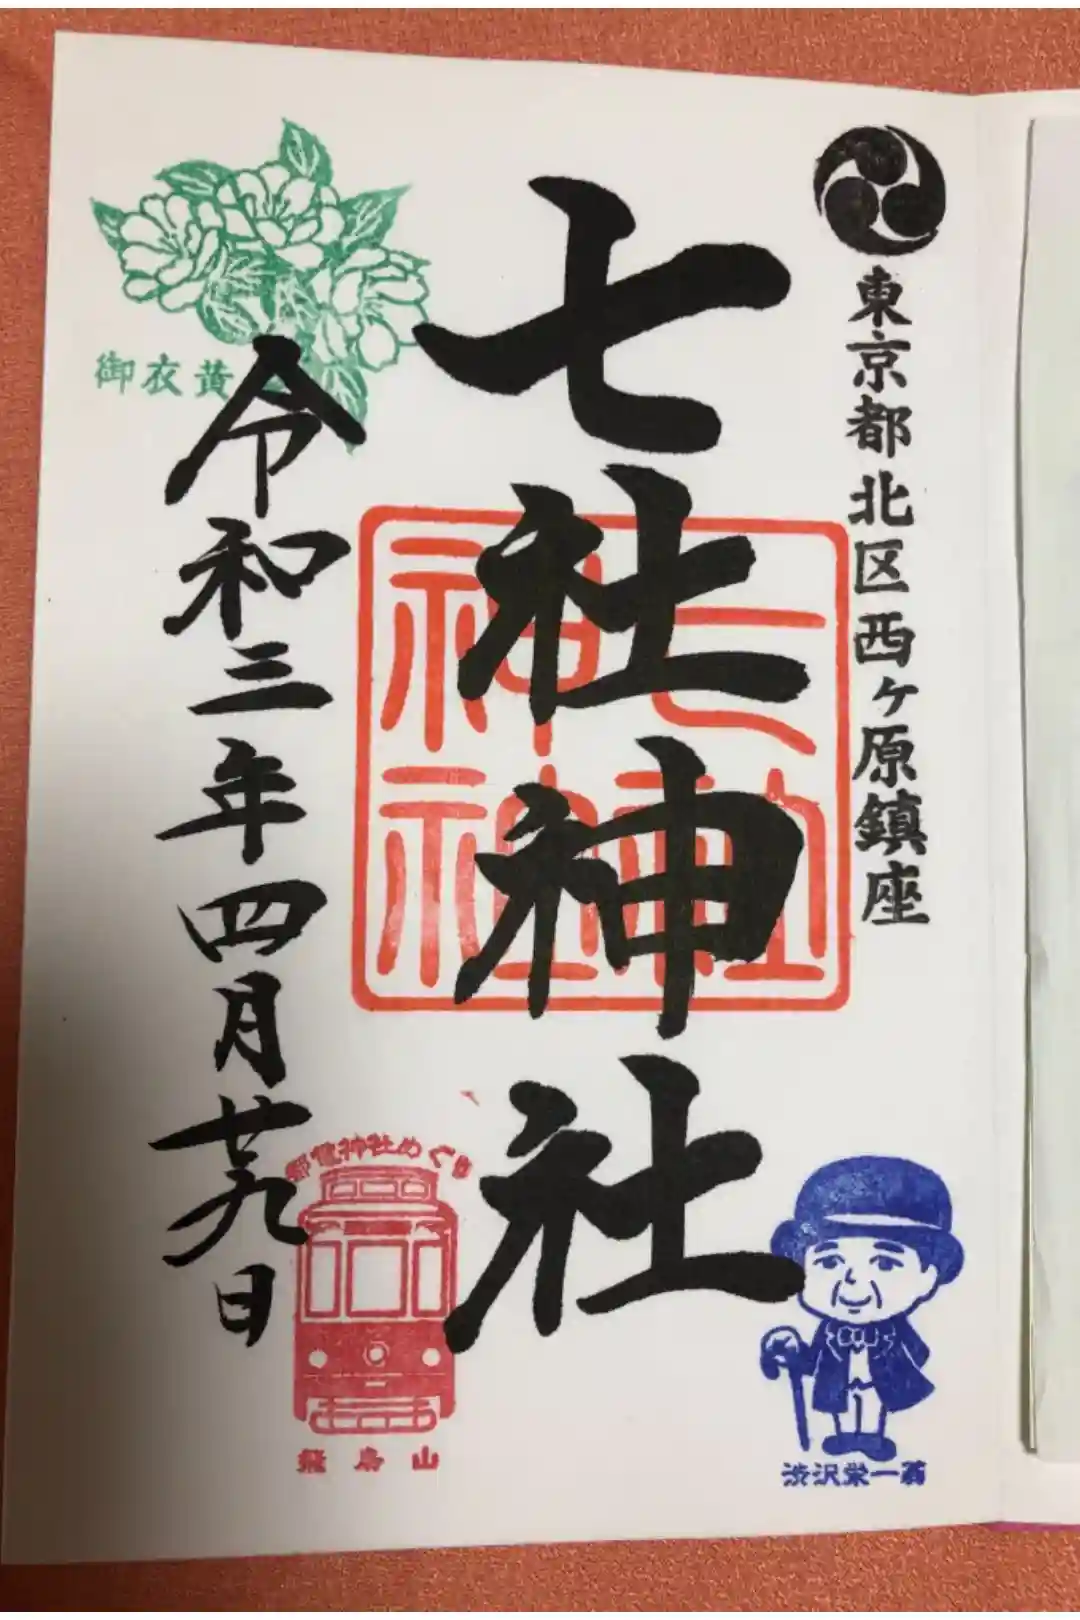 東京都北区西ヶ原鎮座
七社神社
七社
神社
令和三年四月廿九日
御衣黄
都電神社めぐり
飛鳥山
渋沢栄一翁